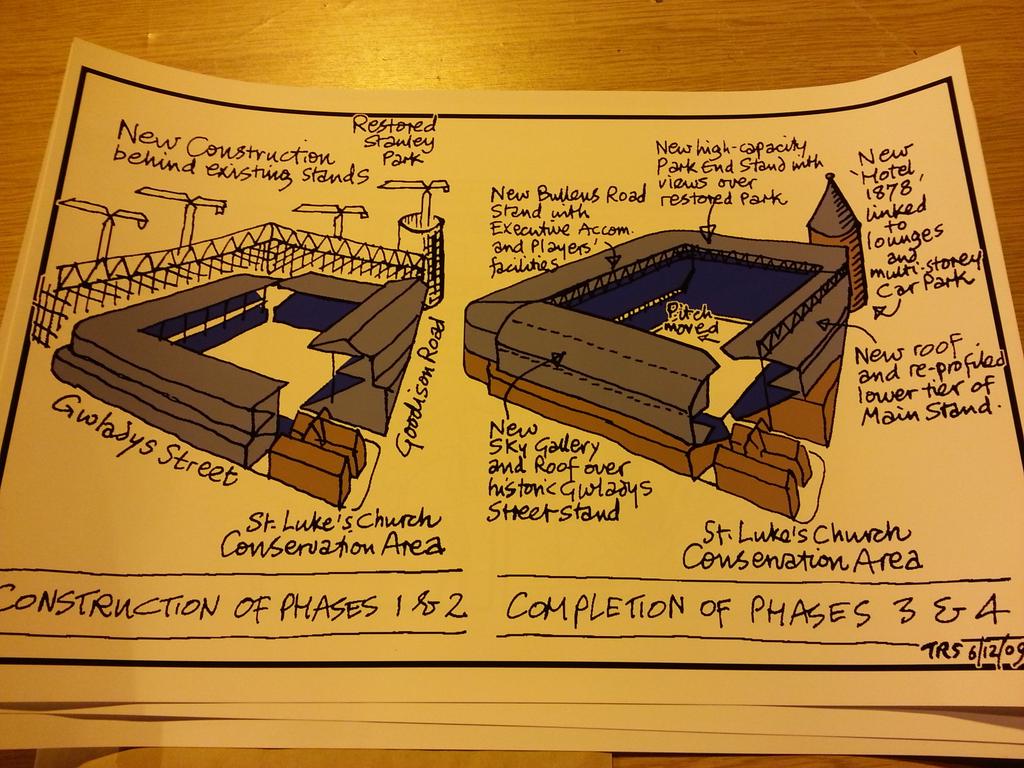 New Construction
behind existing stands
Restored
Stanley
Park
Gwladys Street
Goodison Road
St. Luke's Church
Conservation Area
CONSTRUCTION OF PHASES 1 & 2
New Bullens Road
Stand with
Executive Accom.
and Players'
facilities
New high-capacity
Park End Stand with
views over
restored Park
New
'Hotel
1878'
linked
to
lounges
and
multi-storey
Car Park
Pitch
moved
New roof
and re-profiled
lower tier of
Main Stand.
New
Sky Gallery
and Roof over
historic Gwladys
Street stand
St. Luke's Church
Conservation Area
COMPLETION OF PHASES 3 & 4
TRS 6/12/09